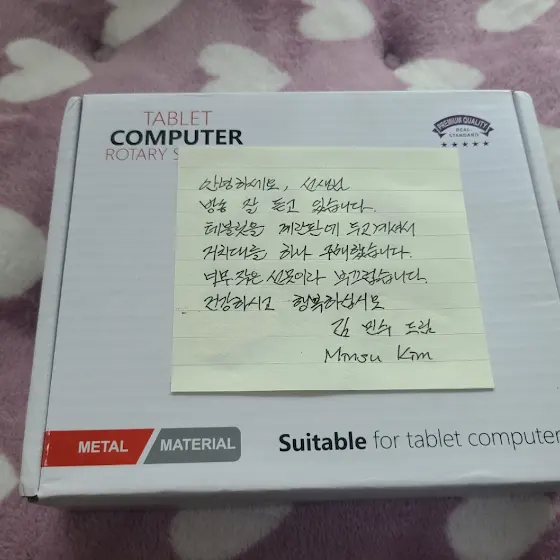 TABLET
COMPUTER
ROTARY S
PREMIUM QUALITY
REAL
STANDARD
안녕하세요, 선생님
방송 잘 듣고 있습니다.
테블릿을 계란판에 두고계셔서
거치대를 하나 구매했습니다.
너무 작은 선물이라 부끄럽습니다.
건강하시고 행복하십시요
김 민수 드림
Minsu Kim
METAL MATERIAL
Suitable for tablet computer